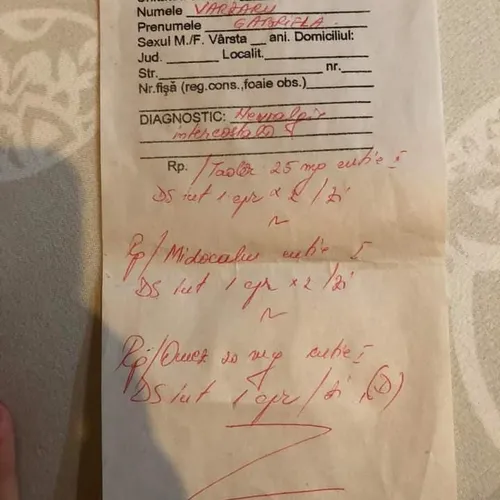 Numele VARZARU
Prenumele GABRIELA
Sexul M./F. Vârsta ani. Domiciliul:
Jud. Localit.
Str. nr.
Nr.fişă (reg.cons.,foaie obs.)
DIAGNOSTIC: Nevralgie
intercostală
Rp. / 25 mg cutie I
DS int 1 cpr x 2 / zi
Rp/ Midocalm cutie I
DS int 1 cpr x 2 / zi
Rp/ Omez 20 mg cutie I
DS int 1 cpr / zi (D)